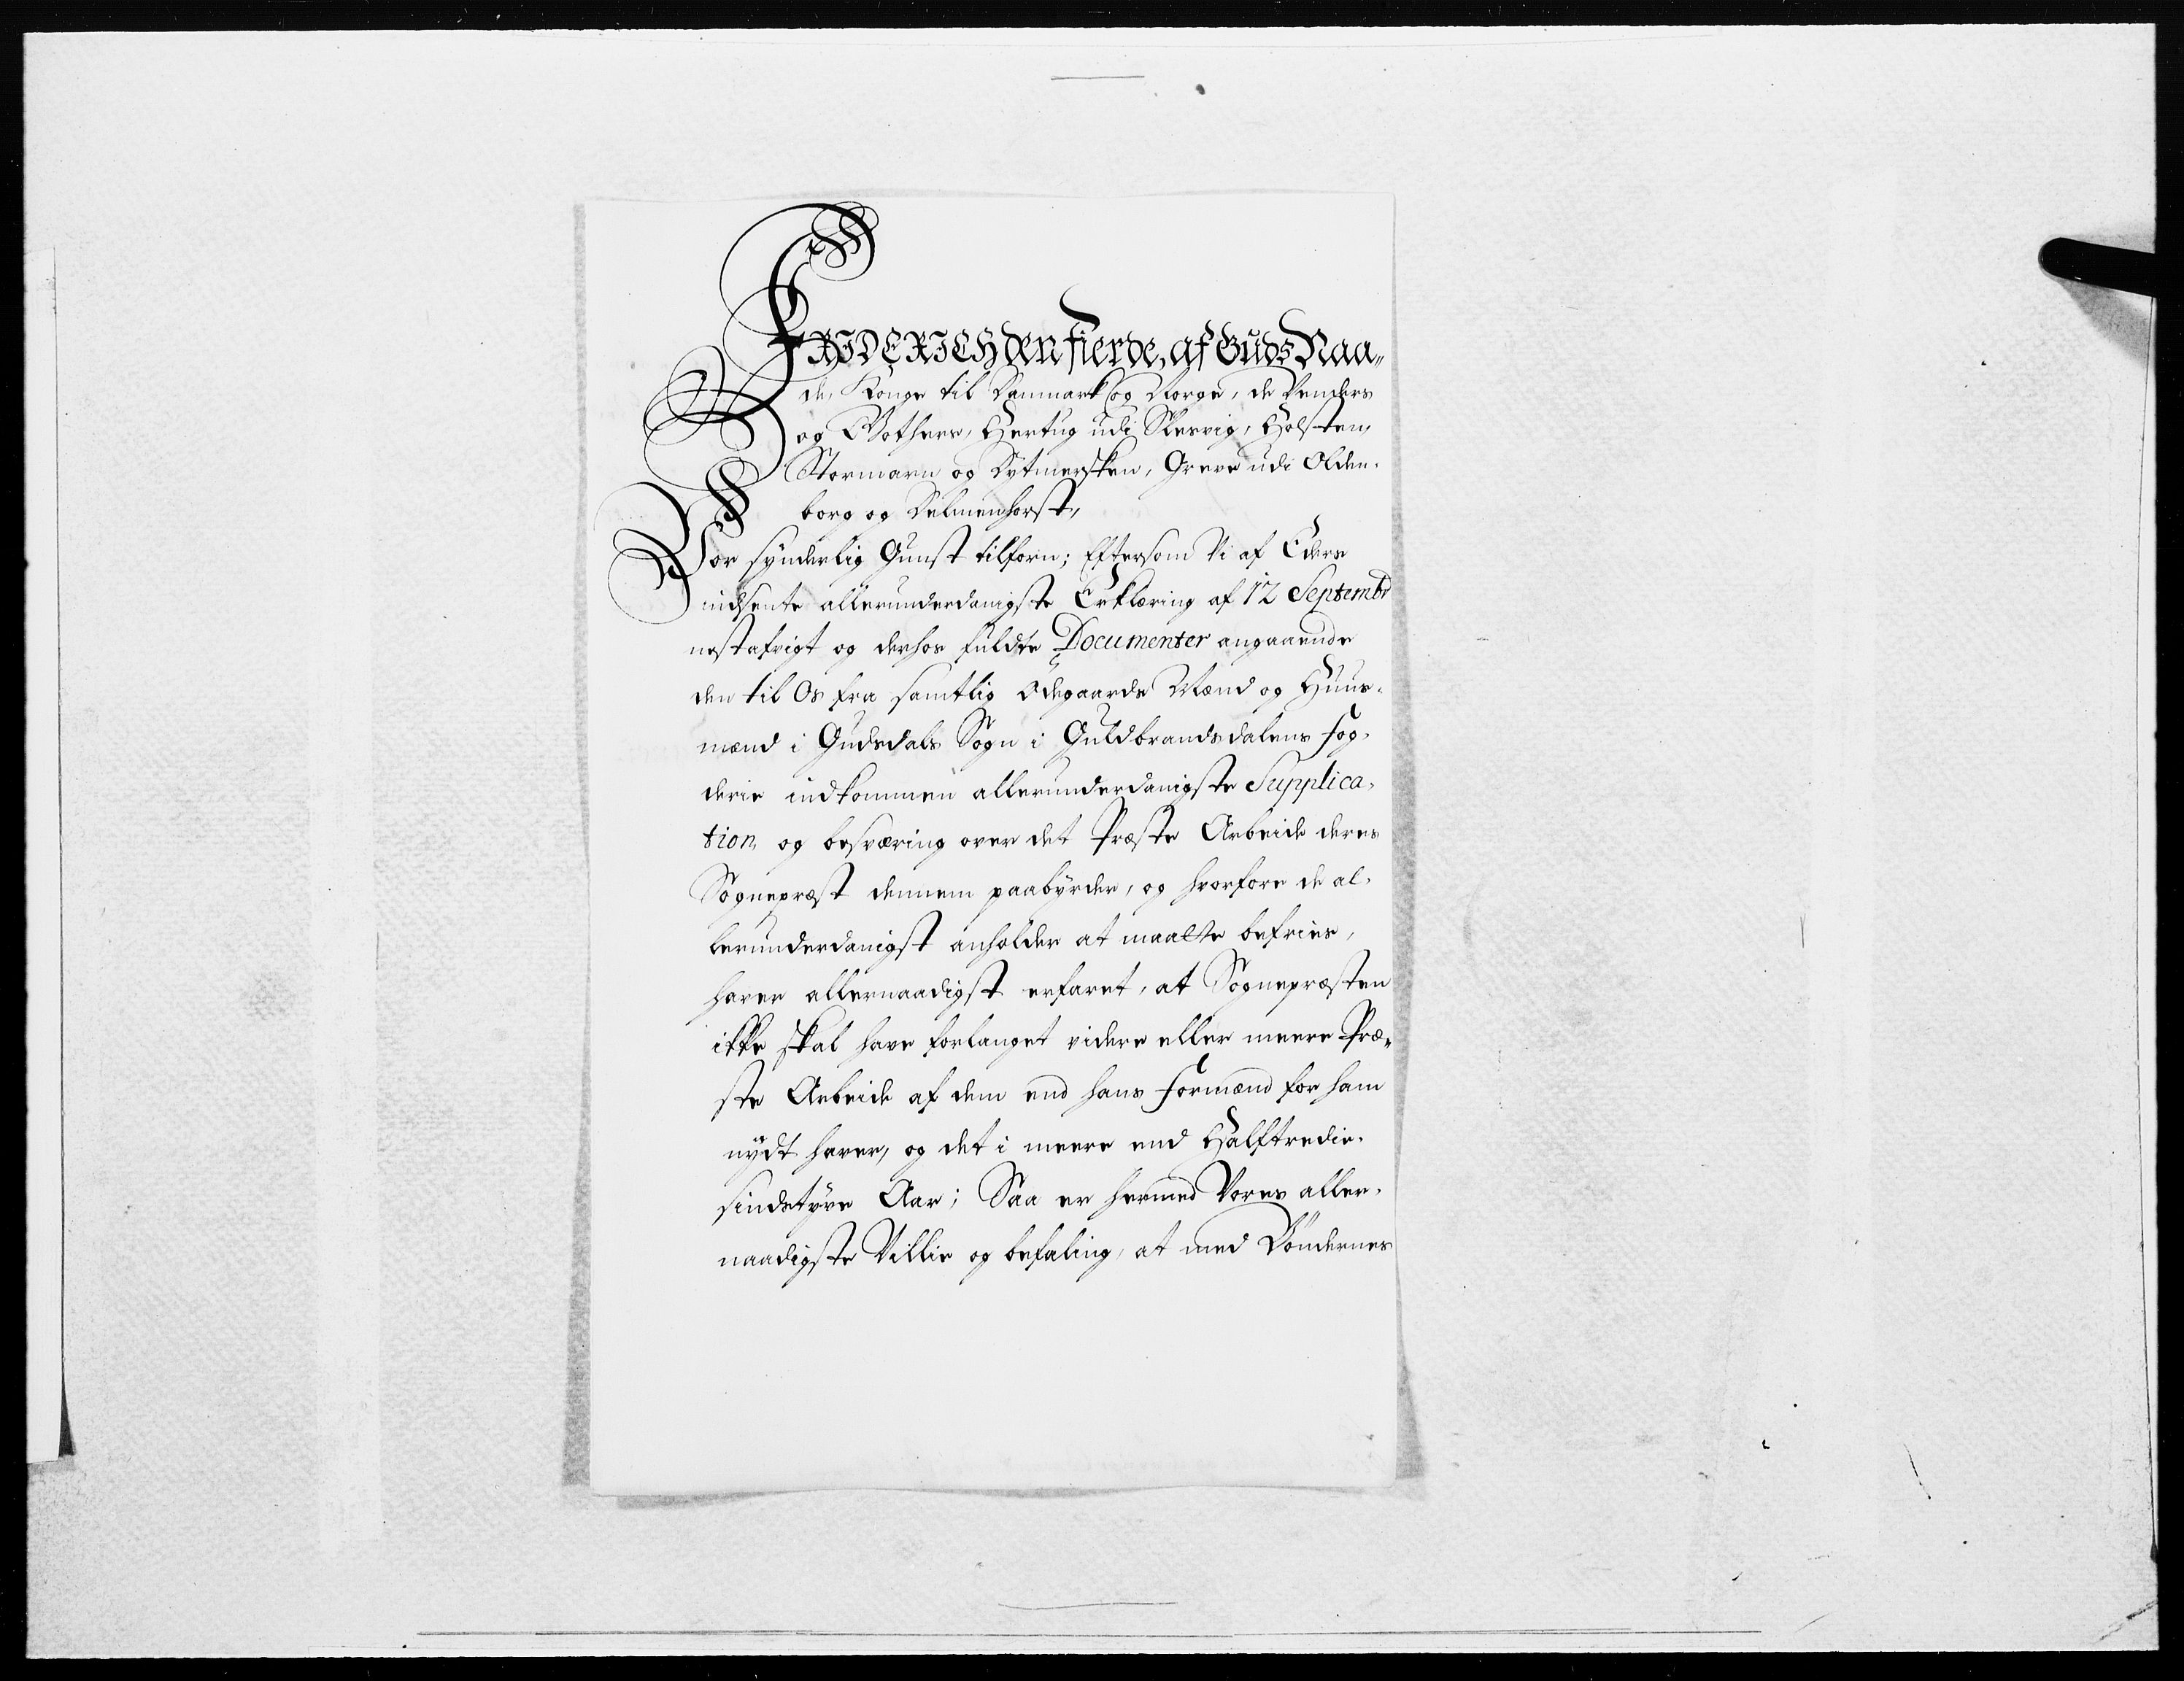 FRIDERICH den Fierde, af Guds Naa-
de, Konge til Danmark og Norge, de Venders
og Gothers, Hertug udi Slesvig, Holsten,
Stormarn og Dytmersken, Greve udi Olden-
borg og Delmenhorst,
Vor synderlig Gunst tilforn; Eftersom Vi af Eders
indsente allerunderdanigste Erklæring af 12 Septembr
nestafvigt og derhos fuldte Documenter angaaende
den til Os fra samtlig Ödegaards Mænd og Huus-
mænd i Gudsdals Sogn i Guldbrandsdalens Fog-
derie indkommen allerunderdanigste Supplica-
tion, og besværing over det Præste Arbeide deres
Sognepræst dennem paabÿrder, og hvorfore de al-
lerunderdanigst anholder at maatte befries,
haver allernaadigst erfaret, at Sognepræsten
ikke skal have forlanget videre eller meere Præ-
ste Arbeide af dem end hans Formænd for ham
nÿdt haver, og det i meere end Halftredie-
sindstÿve Aar; Saa er hermed Vores aller-
naadigste Villie og befaling, at med Böndernes